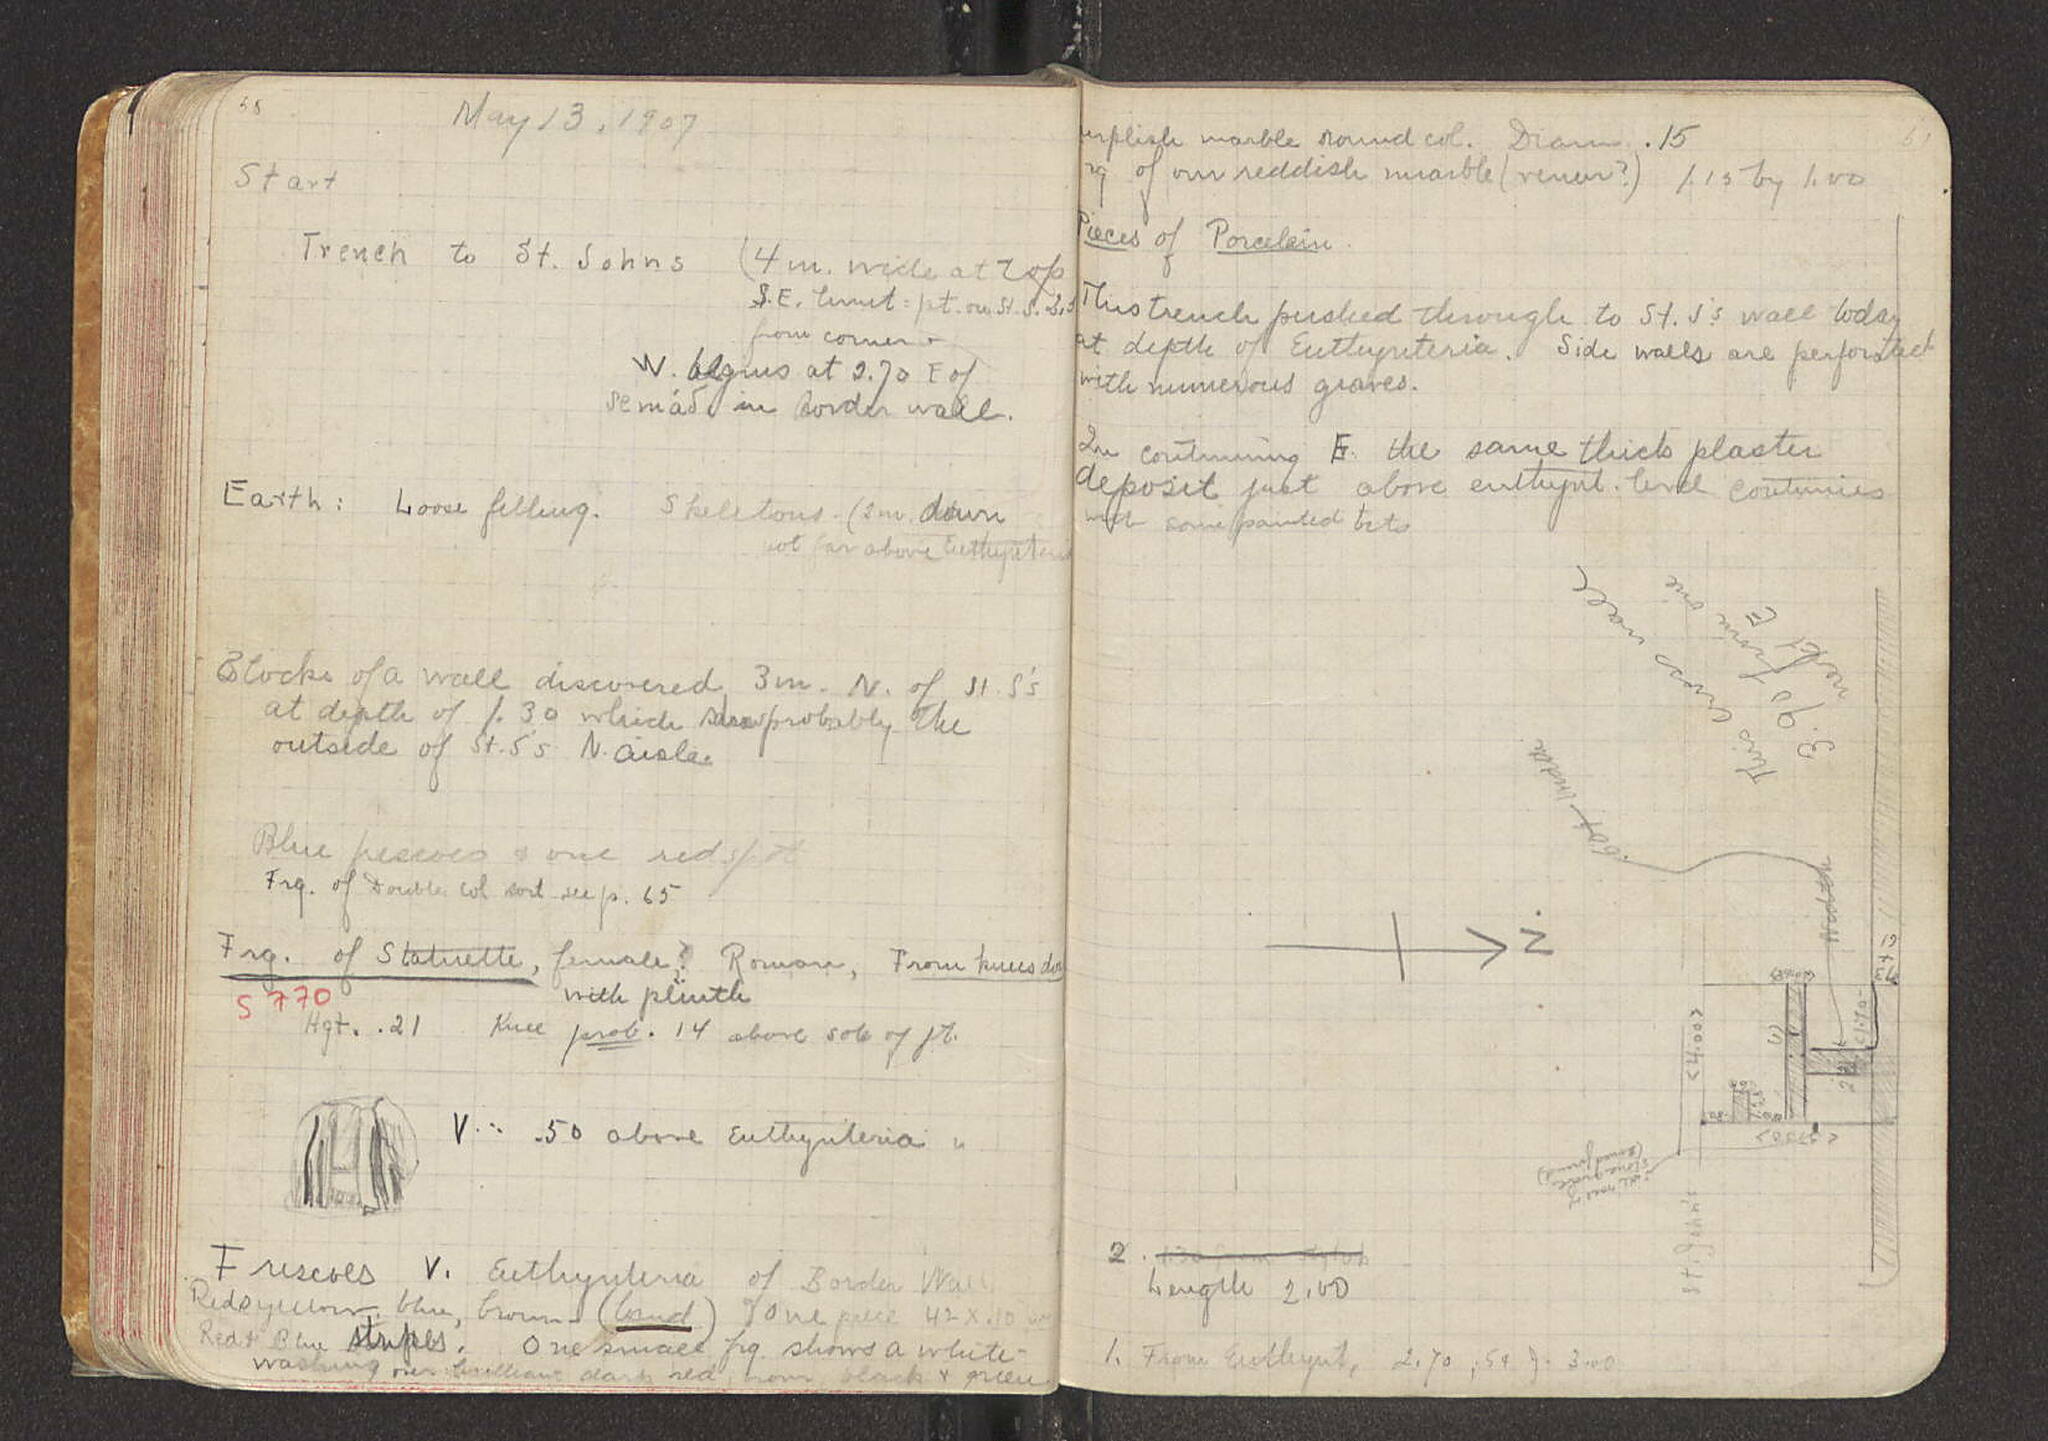 May 13, 1907
Start
Trench to St. Johns (4 m. wide at top
S.E. limit = pt. on St. J.
from corner
W. begins at 2.70 E of
in border wall.
Earth: Loose filling. Skeletons (2m. down
not far above Euthynteria
Blocks of a wall discovered 3m. N. of St. J's
at depth of 1.30 which probably the
outside of St. J's N. aisle.
Blue frescoes & one red spot
Frg. of Double col sort see p. 65
Frg. of Statuette, female? Roman, From knees
with plinth
S 770
Hgt. .21 Knee prob. 14 above sole of ft.
V .50 above Euthynteria
Frescoes V. Euthynteria of Border Wall
Red, yellow, blue, brown (band) One piece 42 x .10
Red & Blue stripes. One small frg. shows a white-
washing over brilliant dark red, black & green
marble round col. Diam. .15
of our reddish marble (veneer?) 1.13 by 1.00
Pieces of Porcelain.
This trench pushed through to St. J's wall today
at depth of Euthynteria. Side walls are perforated
with numerous graves.
In continuing E. the same thick plaster
deposit just above euthynt. level continues
with some painted bits
This cross wall
3.90 from one
next E
N.
<4.00>
(1)
St. John's
2.
Length 2.00
1. From Euthynt, 2.70, .54 3.00